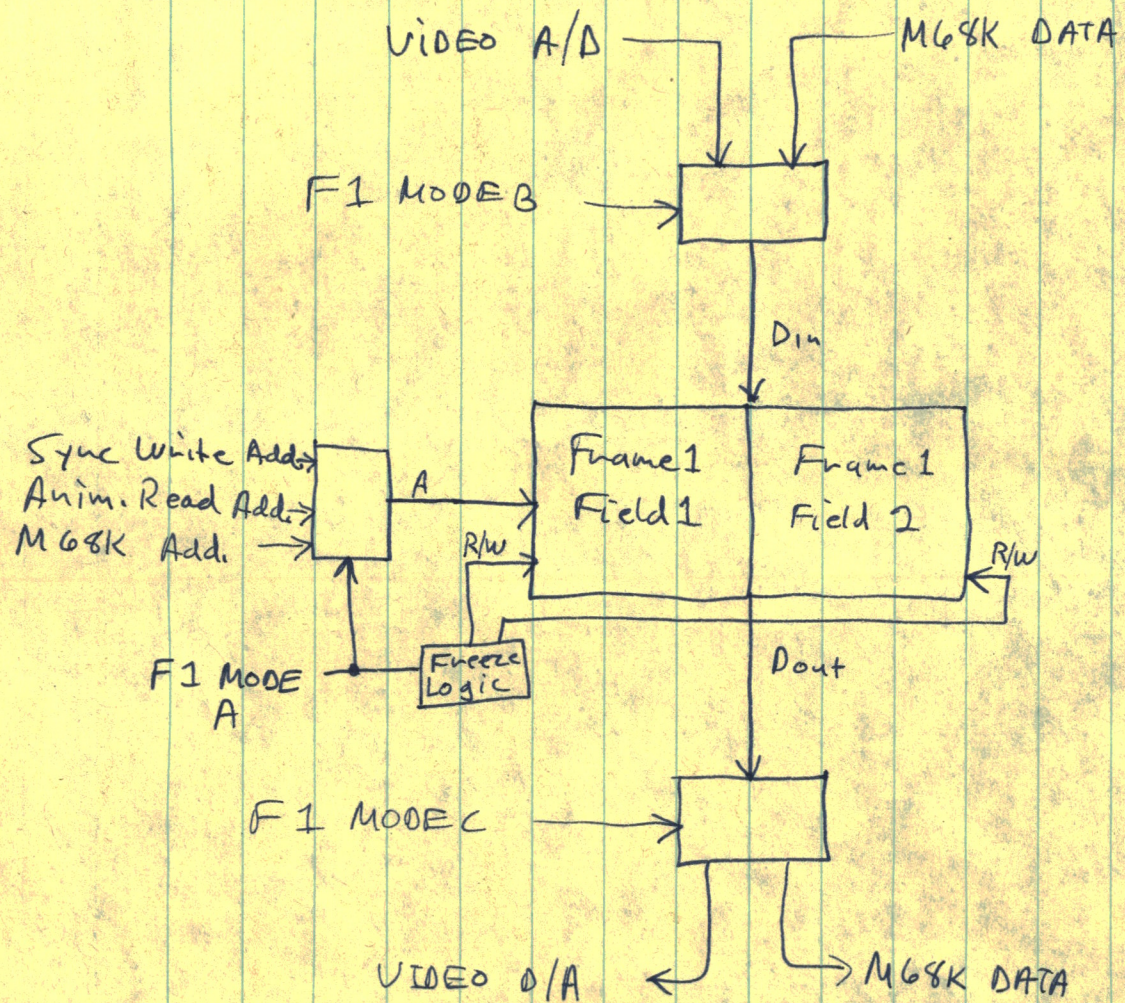 VIDEO A/D
M68K DATA
F1 MODE B
Din
Sync Write Add.
Anim. Read Add.
M68K Add.
A
R/W
Frame 1
Field 1
Frame 1
Field 2
R/W
F1 MODE
A
Freeze
Logic
Dout
F1 MODE C
VIDEO D/A
M68K DATA